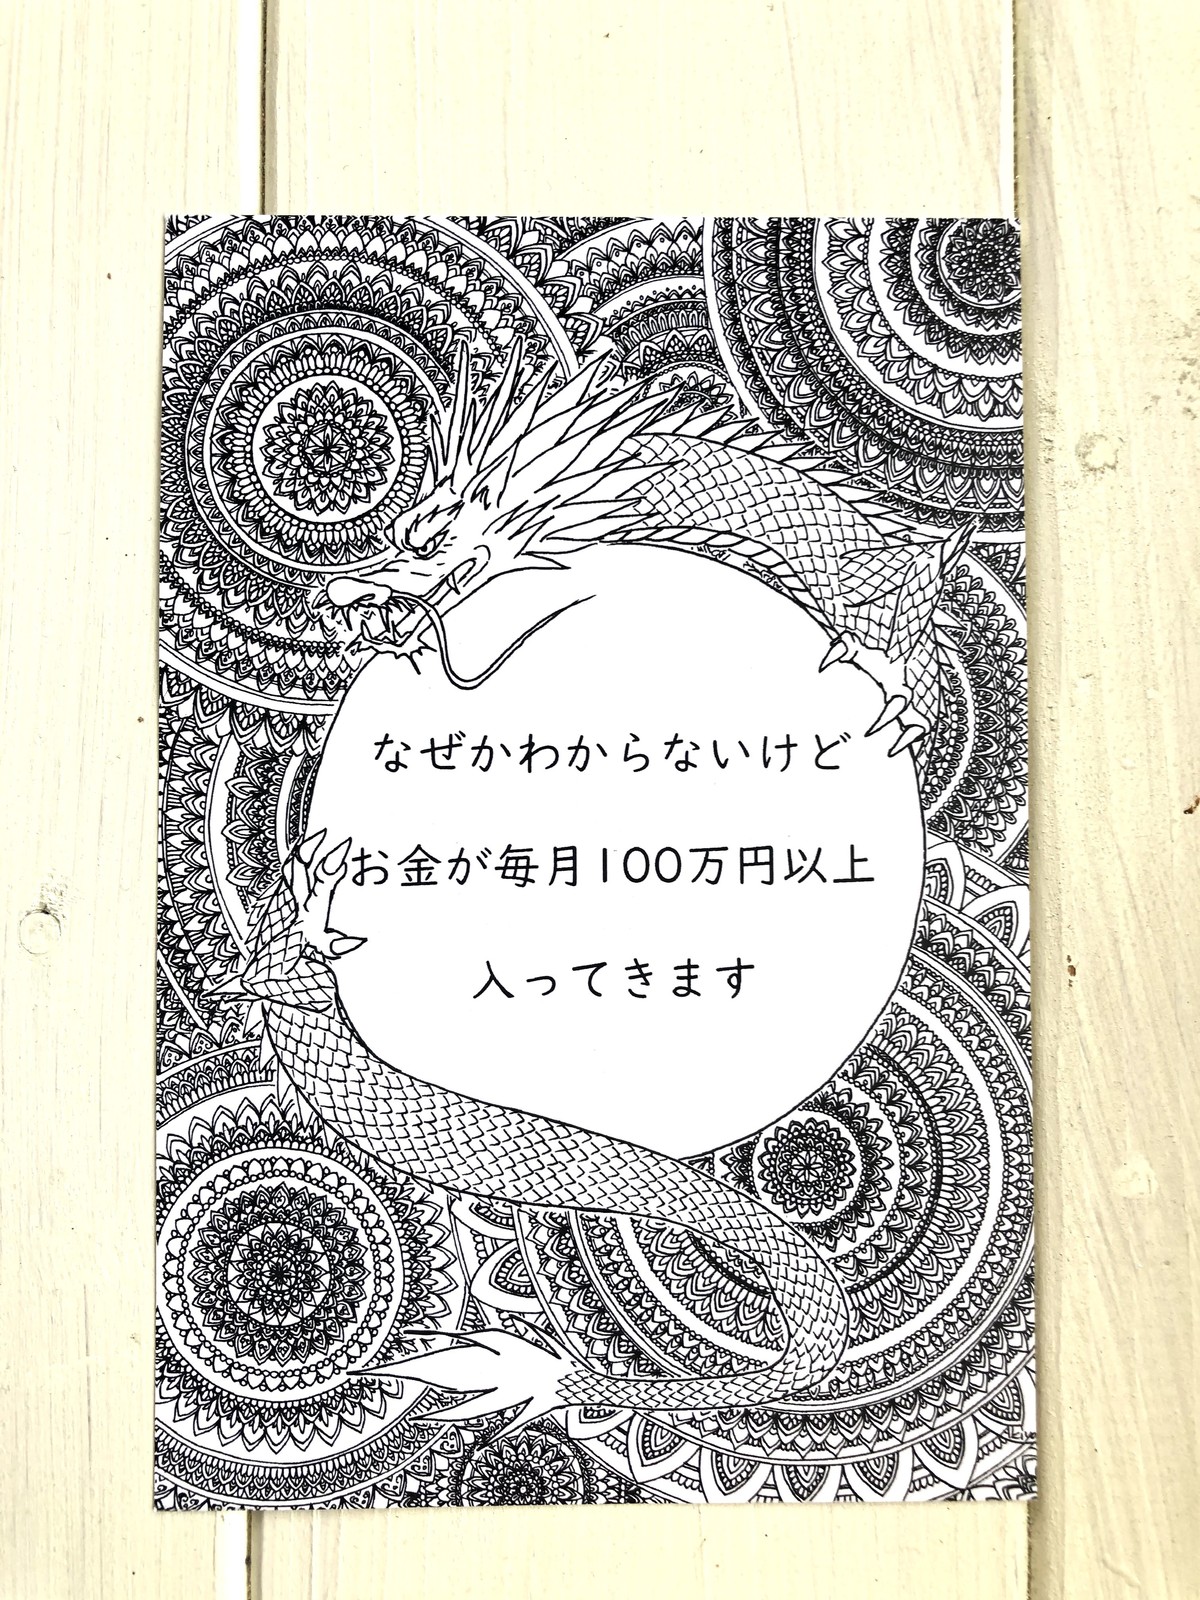 なぜかわからないけど
お金が毎月100万円以上
入ってきます